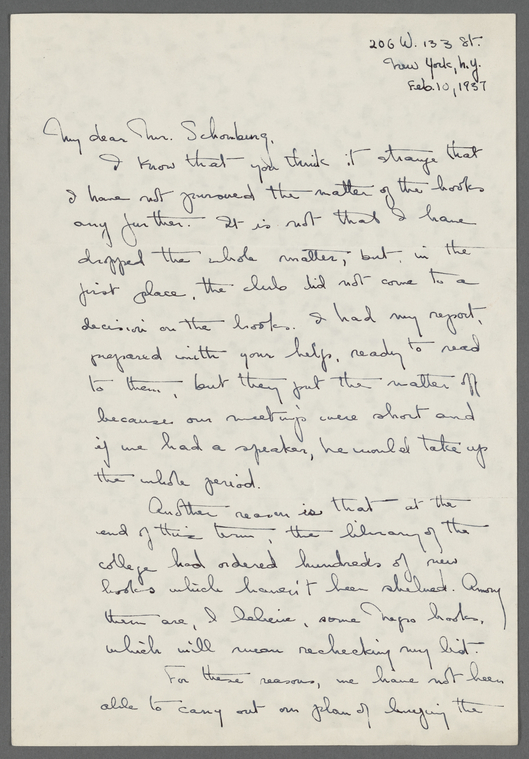 206 W. 133 St.
New York, N.Y.
Feb. 10, 1937
My dear Mr. Schomburg,
I know that you think it strange that
I have not pursued the matter of the books
any further. It is not that I have
dropped the whole matter, but, in the
first place, the club did not come to a
decision on the books. I had my report,
prepared with your help, ready to read
to them, but they put the matter off
because our meetings were short and
if we had a speaker, he would take up
the whole period.
Another reason is that at the
end of this term, the library of the
college had ordered hundreds of new
books which haven't been shelved. Among
them are, I believe, some Negro books,
which will mean rechecking my list.
For these reasons, we have not been
able to carry out our plan of buying the